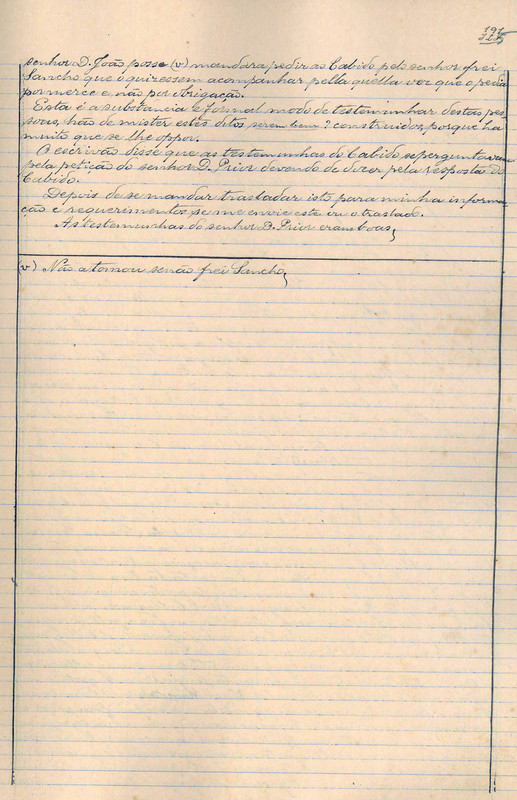 senhor D. João posse (v) mandara pedir ao Cabido pelo senhor frei
Sancho que o quizessem acompanhar pella quella vez que o pedia
por merce e não por obrigação.
Esta é a substancia e formal modo de testemunhar destas pes-
soas, hão de mister estes ditos serem bem? construidos porque ha
muito que se lhe oppor.
O escrivão disse que as testeminhas do Cabido se perguntavam
pela petição do senhor D. Prior devendo de dizer pela resposta do
Cabido.
Depois de se mandar trasladar isto para minha informa-
ção e requerimentos se me envie este ou o traslado.
As testemunhas do senhor D. Prior eram boas,
(v) Não a tomou senão frei Sancho,